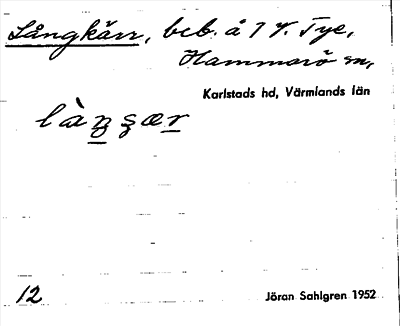 Långkärr, beb. å 1/4 Tye,
Hammarö sn,
Karlstads hd, Värmlands län
12
Jöran Sahlgren 1952